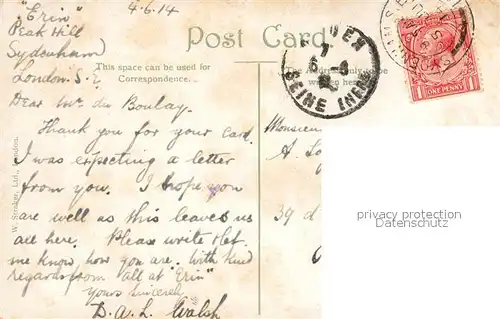 "Erin" 4/6.14
Peak Hill
Sydenham
London. S.E.
Post Card
This space can be used for
Correspondence.
The Address only to be
written here.
SEINE INFRE
ONE PENNY
Dear Mr. du Boulay.
Thank you for your card.
I was expecting a letter
from you. I hope you
are well as this leaves us
all here. Please write & let
me know how you are. With kind
regards from all at "Erin"
Yours Sincerely
D. A. L. Walsh
Monsieur
A.
39 d
W. Straker, Ltd., London.
privacy protection
Datenschutz